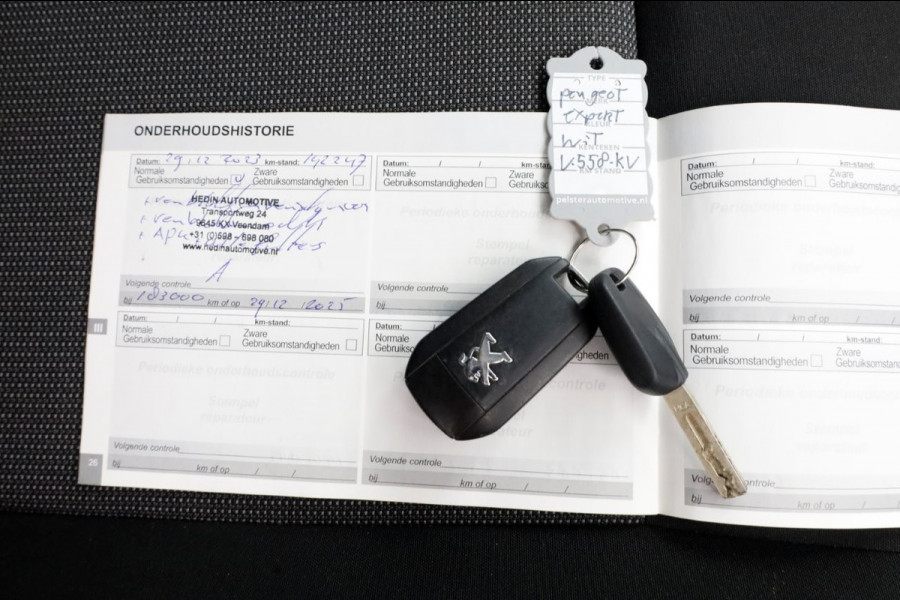 ONDERHOUDSHISTORIE
Datum: 29/12 2023 km-stand: 142247
Normale Gebruiksomstandigheden
Zware Gebruiksomstandigheden
HEDIN AUTOMOTIVE
Transportweg 24
9645 KX Veendam
+31 (0)598 - 698 080
www.hedinautomotive.nl
Volgende controle
bij 183000 km of op 29/12 /2025
Datum: / / km-stand:
Normale Gebruiksomstandigheden
Zware Gebruiksomstandigheden
Periodieke onderhoudscontrole
Stempel
reparateur
Volgende controle
bij km of op / /
26
III
Datum: / / km-sta
Normale Gebruiksomstandigheden
Zware
Periodieke onderhouds
Stempel
Volgende controle
bij
Datum:
Normale
Gebruiksoms
Volgende controle
bij km of op / /
TYPE
peugeot
expert
KLEUR
wit
KENTEKEN
V-558-KV
KM STAND
pelsterautomotive.nl
Datum: / / km-stand:
Normale Gebruiksomstandigheden
Zware Gebruiksomstandi
Volgende controle
bij km of op /
Datum: / / km-stand:
Normale Gebruiksomstandigheden
Zware Gebruiksoms
Volg
bij km of op /